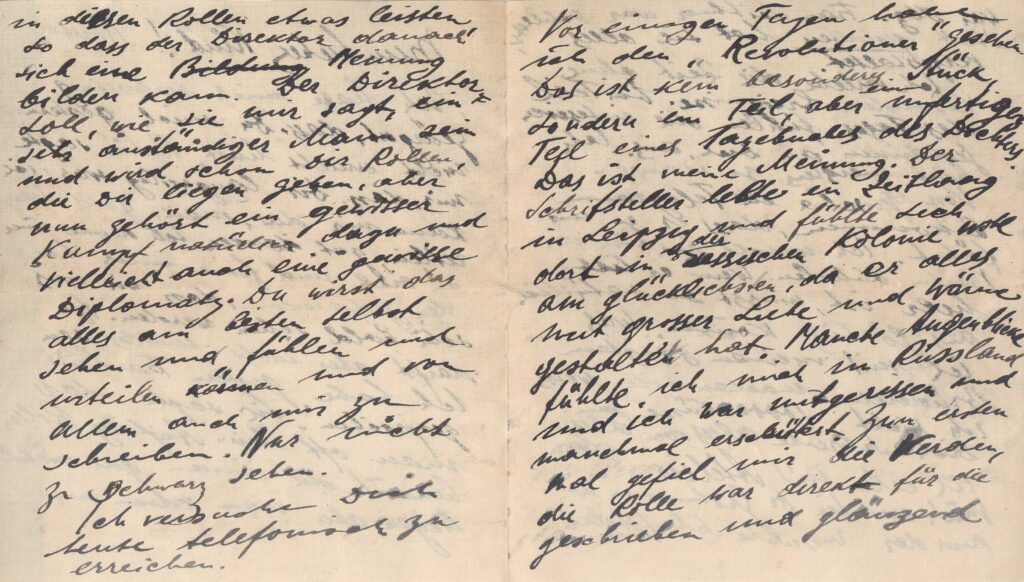 in diesen Rollen etwas leisten
so dass der Direktor danach
sich eine Bildung Meinung
bilden kann. Der Direktor
soll, wie sie mir sagt, ein
sehr anständiger Mann sein
und wird schon Dir Rollen,
die Dir liegen geben, aber
nun gehört ein gewisser
Kampf natürlich dazu und
vielleicht auch eine gewisse
Diplomatz. Du wirst das
alles am besten selbst
sehen und fühlen und
urteilen können und vor
allem auch mir zu
schreiben. Nur nicht
zu schwarz sehen.
Ich versuche Dich
heute telefonisch zu
erreichen.
Vor einigen Tagen habe
ich den „Revolutioner" gesehen
Das ist kein besonderes Stück,
sondern ein Teil, aber ein unfertiger
Teil eines Tagebuches des Dichters.
Das ist meine Meinung. Der
Schrifsteller lebte ein Zeitlang
in Leipzig und fühlte sich
dort in der russischen Kolonie wohl
am glücklichsten, da er alles
mit grosser Liebe und Wärme
gestalten hat. Manche Augenblicke
fühlte ich mich in Russland
und ich war mitgerissen und
manchmal erschütert. Zum ersten
mal gefiel mir die Verden,
die Rolle war direkt für die
geschrieben und glänzend